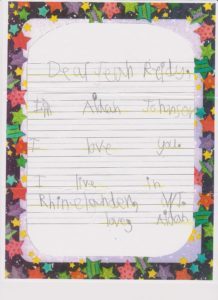 Dear Jeah Reidy.
I'm Aidah Johnson
I love you.
I live in
Rhinelander, WI.
love, Aidah